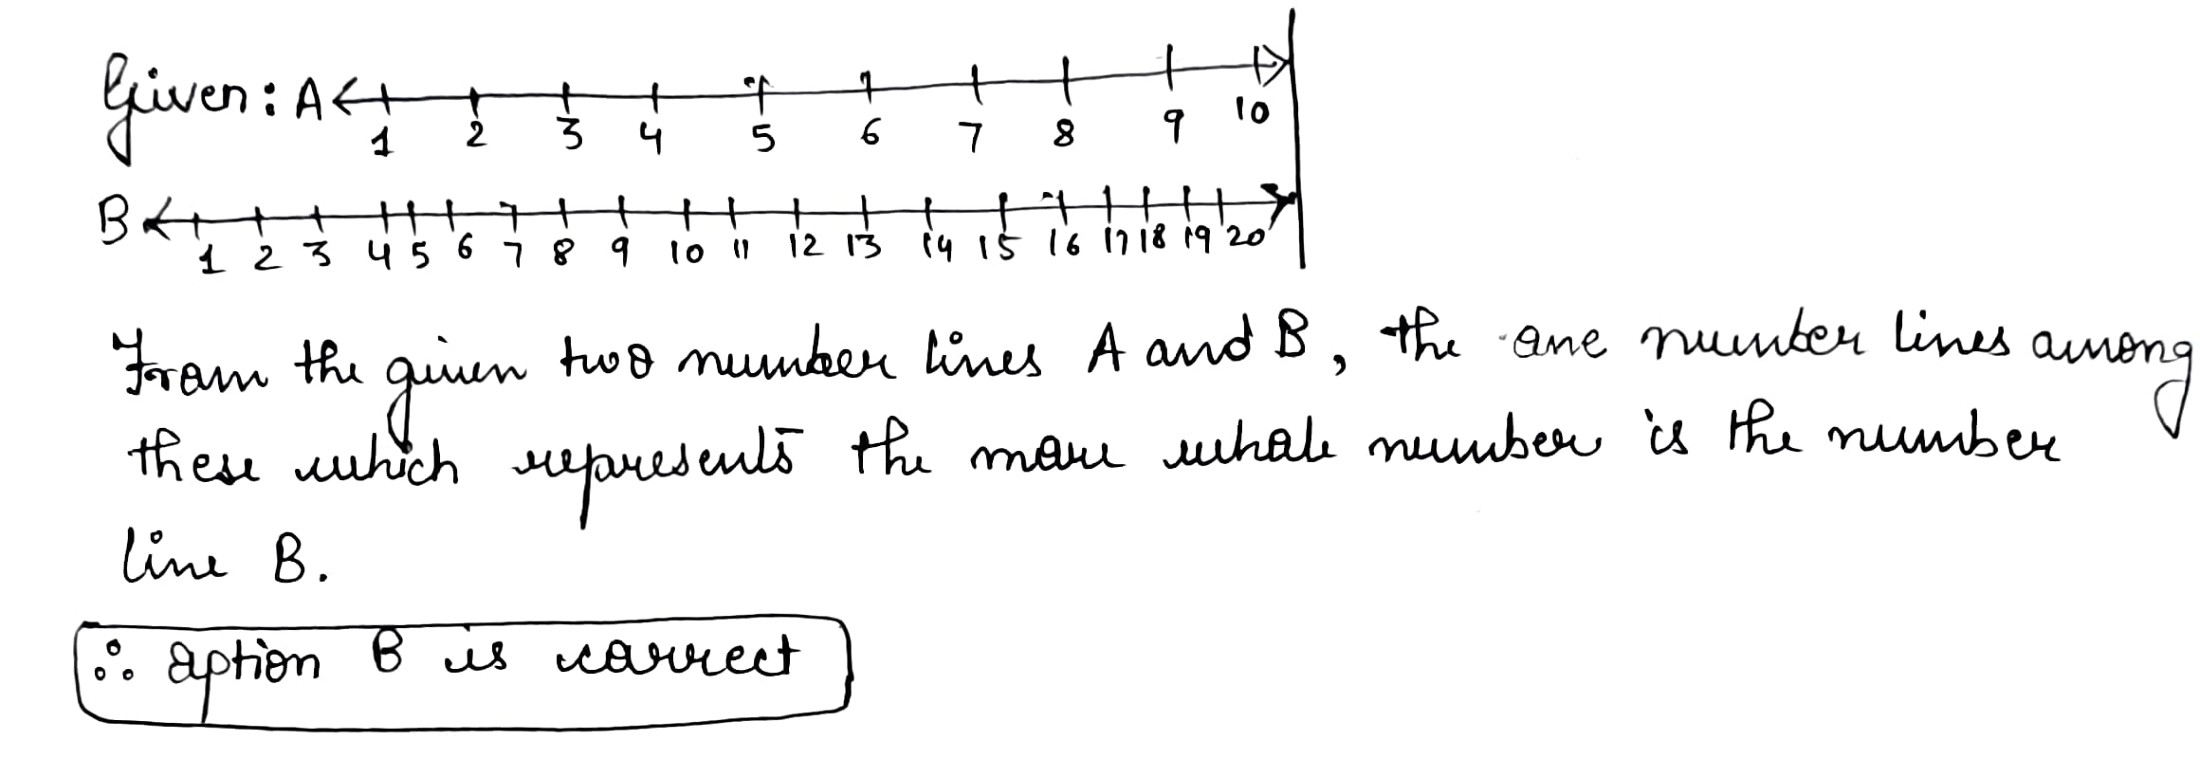 Given: A
1 2 3 4 5 6 7 8 9 10
B
1 2 3 4 5 6 7 8 9 10 11 12 13 14 15 16 17 18 19 20
From the given two number lines A and B, the one number lines among
these which represents the more whole number is the number
line B.
∴ option B is correct